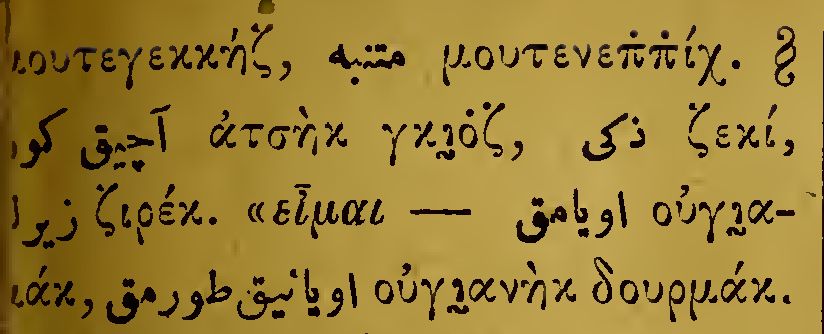 μουτεγεκκήζ, متنبه μουτενεπ̇π̇ίχ. §
آچیق ἀτσὴκ γκι̰ὸζ, ذکی ζεκί,
ζιρέκ. «εἶμαι — اویامق οὐγι̰α-
μάκ, اویانیق طورمق οὐγι̰ανὴκ δουρμάκ.